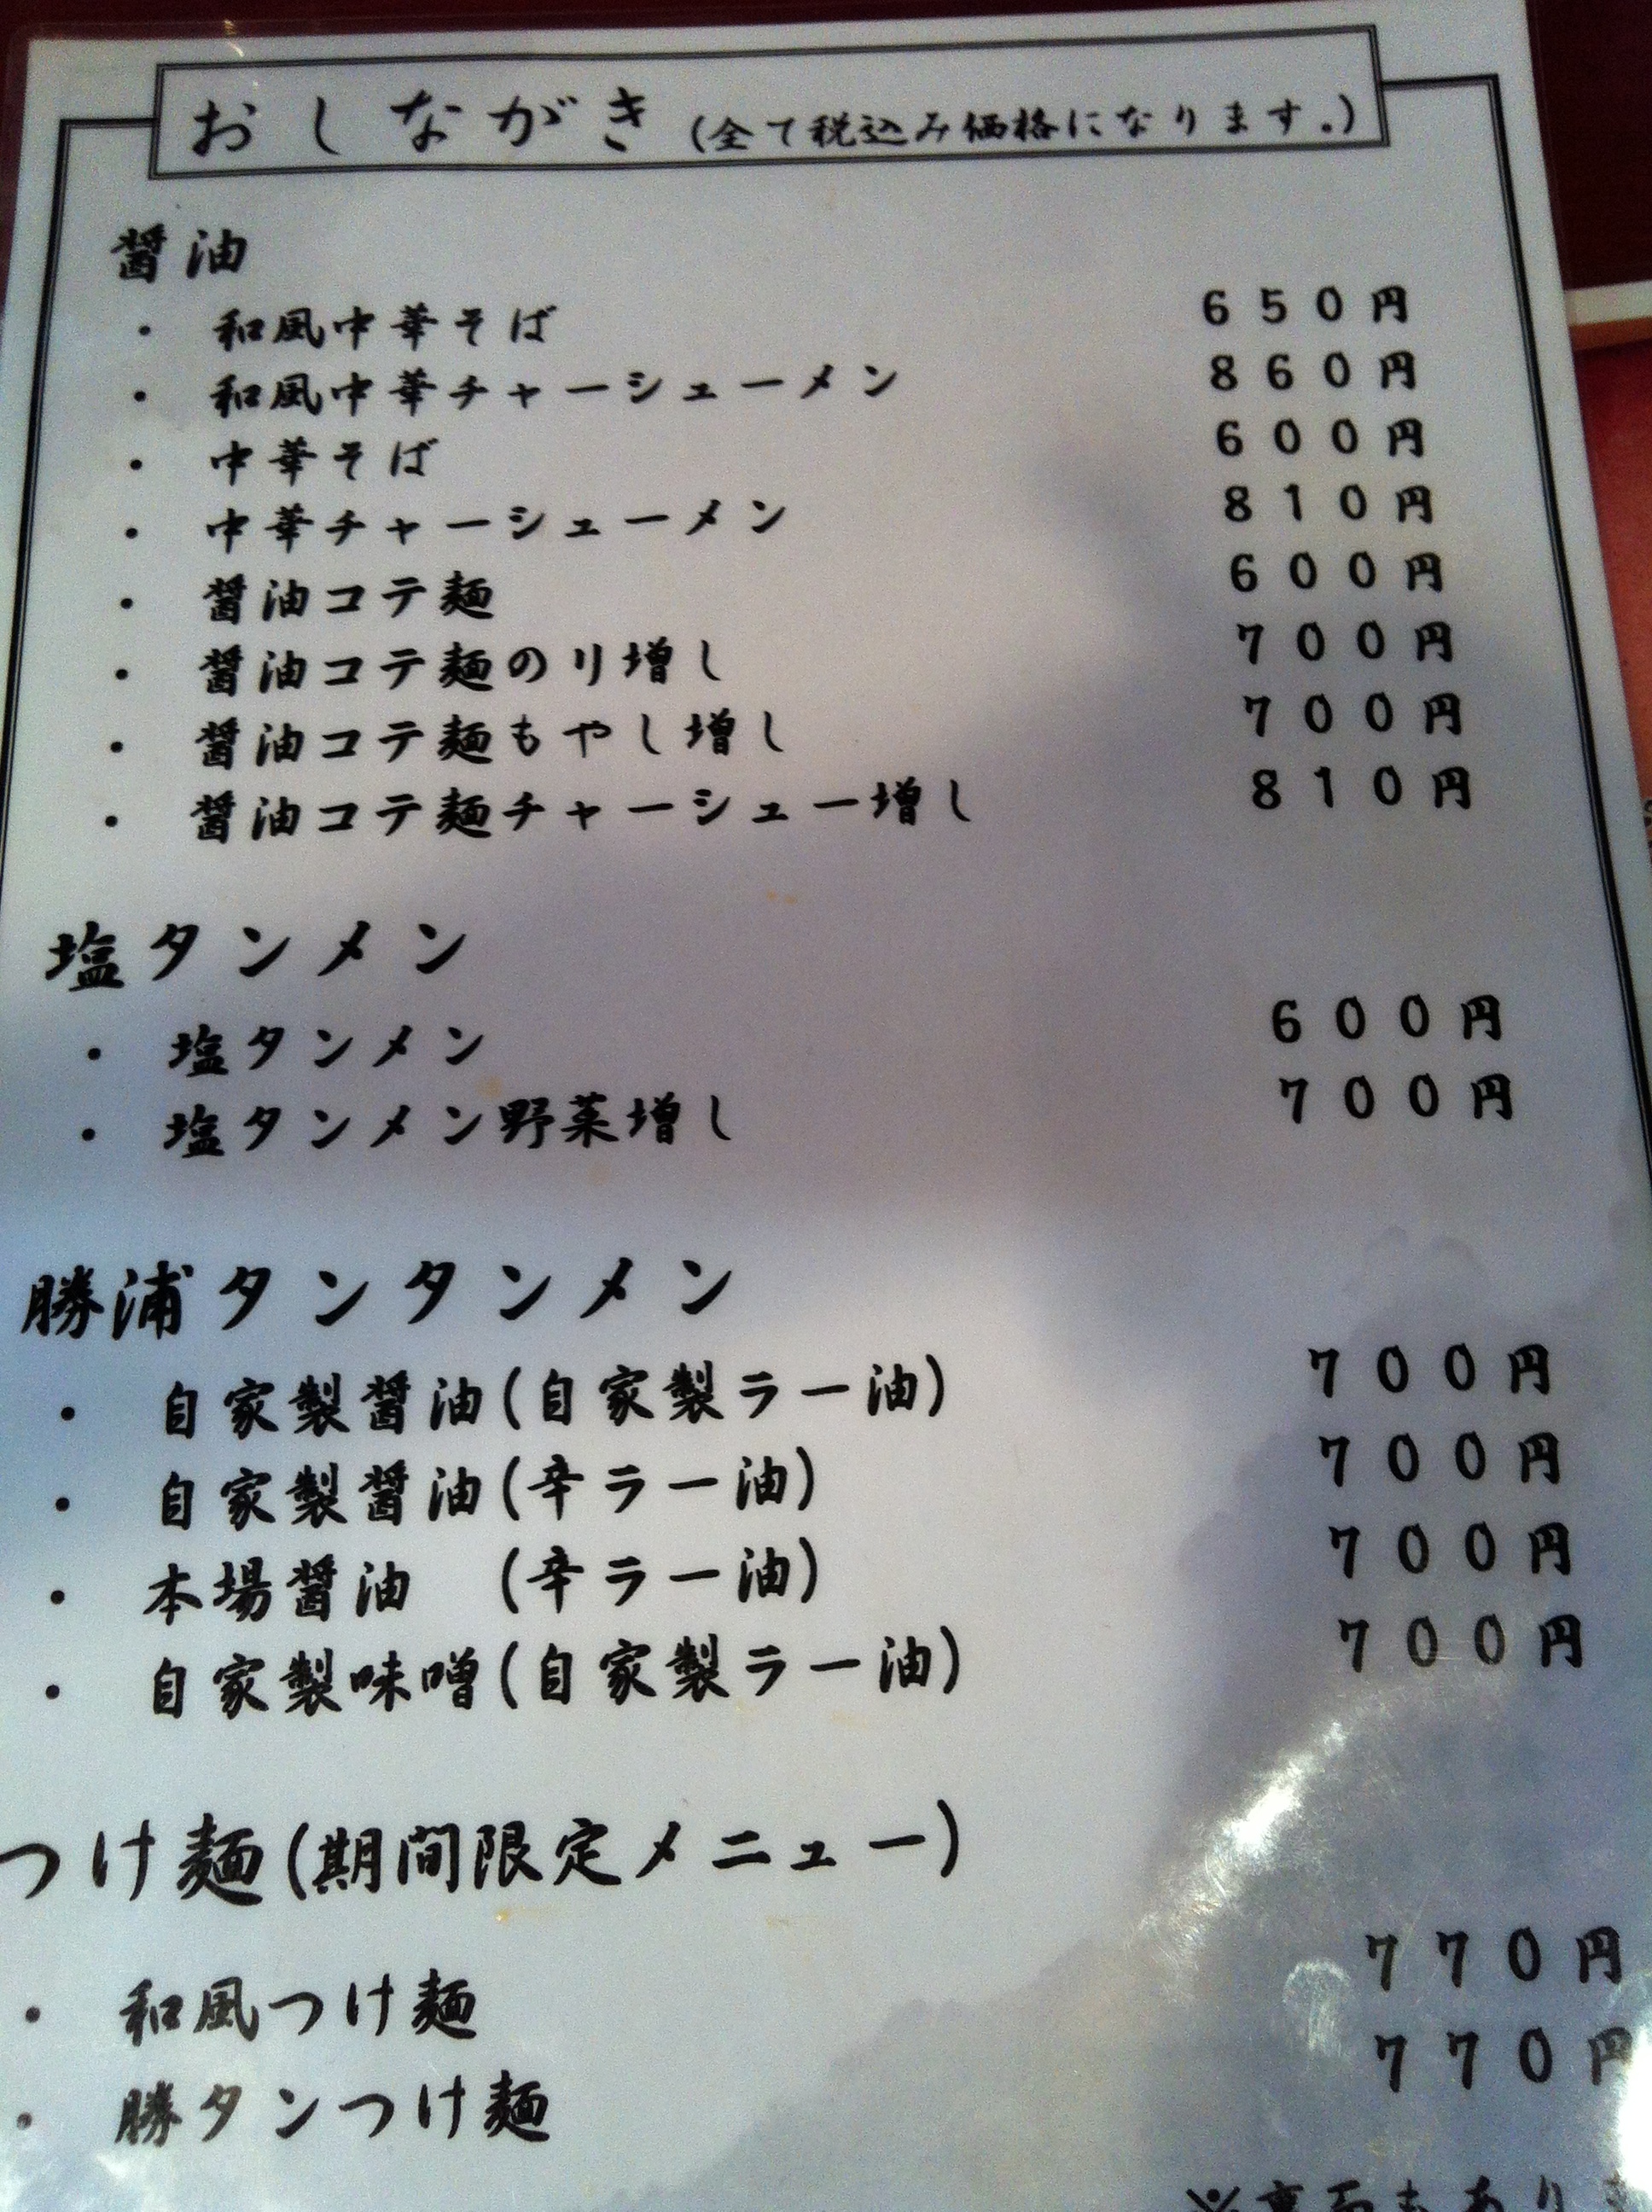 おしながき(全て税込み価格になります。)
醤油
・ 和風中華そば 650円
・ 和風中華チャーシューメン 860円
・ 中華そば 600円
・ 中華チャーシューメン 810円
・ 醤油コテ麺 600円
・ 醤油コテ麺のり増し 700円
・ 醤油コテ麺もやし増し 700円
・ 醤油コテ麺チャーシュー増し 810円
塩タンメン
・ 塩タンメン 600円
・ 塩タンメン野菜増し 700円
勝浦タンタンメン
・ 自家製醤油(自家製ラー油) 700円
・ 自家製醤油(辛ラー油) 700円
・ 本場醤油 (辛ラー油) 700円
・ 自家製味噌(自家製ラー油) 700円
つけ麺(期間限定メニュー)
・ 和風つけ麺 770円
・ 勝タンつけ麺 770円
※裏面もあり